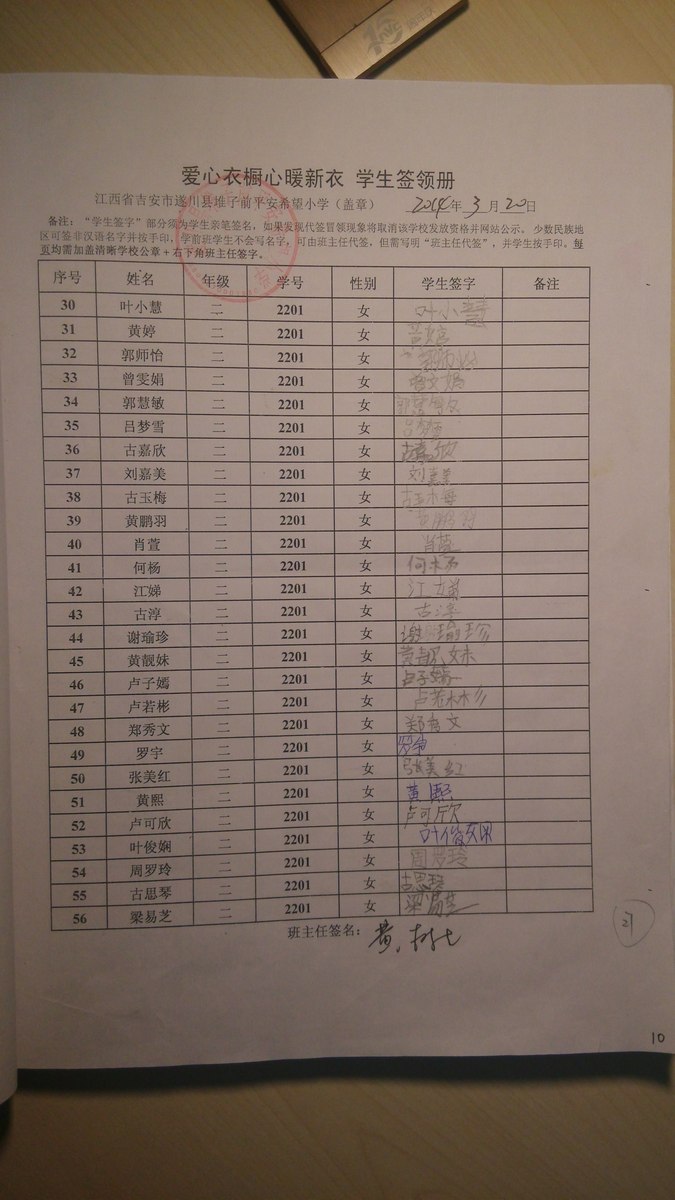 爱心衣橱心暖新衣 学生签领册
江西省吉安市遂川县堆子前平安希望小学（盖章） 2014年 3 月 20日
备注：“学生签字”部分须为学生亲笔签名，如果发现代签冒领现象将取消该学校发放资格并网站公示。 少数民族地
区可签非汉语名字并按手印，学前班学生不会写名字，可由班主任代签，但需写明“班主任代签”，并学生按手印。每
页均需加盖清晰学校公章＋右下角班主任签字。
序号 姓名 年级 学号 性别 学生签字 备注
30 叶小慧 二 2201 女 叶小慧
31 黄婷 二 2201 女 黄婷
32 郭师怡 二 2201 女 郭师怡
33 曾雯娟 二 2201 女 曾文娟
34 郭慧敏 二 2201 女 郭慧敏
35 吕梦雪 二 2201 女 吕梦雪
36 古嘉欣 二 2201 女 古嘉欣
37 刘嘉美 二 2201 女 刘嘉美
38 古玉梅 二 2201 女 古玉梅
39 黄鹏羽 二 2201 女 黄鹏羽
40 肖萱 二 2201 女 肖萱
41 何杨 二 2201 女 何
42 江娣 二 2201 女 江娣
43 古淳 二 2201 女 古淳
44 谢瑜珍 二 2201 女 谢瑜珍
45 黄靓妹 二 2201 女 黄靓妹
46 卢子嫣 二 2201 女 卢子嫣
47 卢若彬 二 2201 女 卢若彬
48 郑秀文 二 2201 女 郑秀文
49 罗宇 二 2201 女 罗宇
50 张美红 二 2201 女 张美红
51 黄熙 二 2201 女 黄熙
52 卢可欣 二 2201 女 卢可欣
53 叶俊娴 二 2201 女 叶俊
54 周罗玲 二 2201 女 周罗玲
55 古思琴 二 2201 女 古思琴
56 梁易芝 二 2201 女 梁易芝
班主任签名：黄
27
10